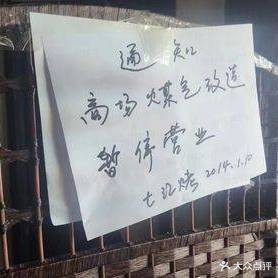 通知
商场煤气改造
暂停营业
七 烤 2014.1.10
大众点评